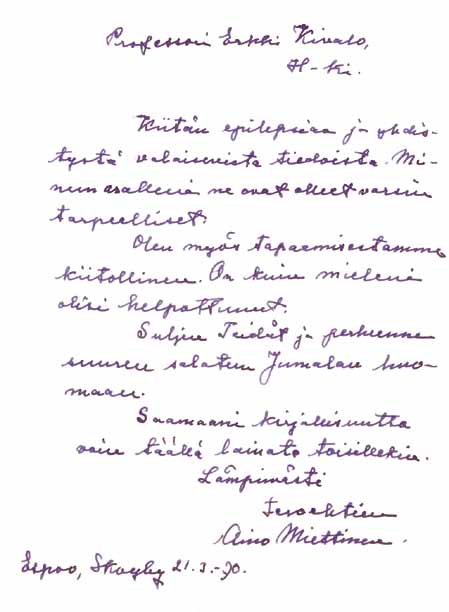 Professori Erkki Kivalo,
H-ki.
Kiitän epilepsiaa ja yhdis-
tystä valaisevista tiedoista. Mi-
nun asallenia ne ovat olleet varsin
tarpeelliset.
Olen myös tapaamisestamme
kiitollinen. On kuin mieleni
olisi helpottunut.
Suljen Teidät ja perheenne
suuren salatun Jumalan huo-
maan.
Saamaani kirjallisuutta
voin täällä lainata toisillekin.
Lämpimästi
tervehtien
Aino Miettinen.
Espoo, Skogby 21.3.-70.